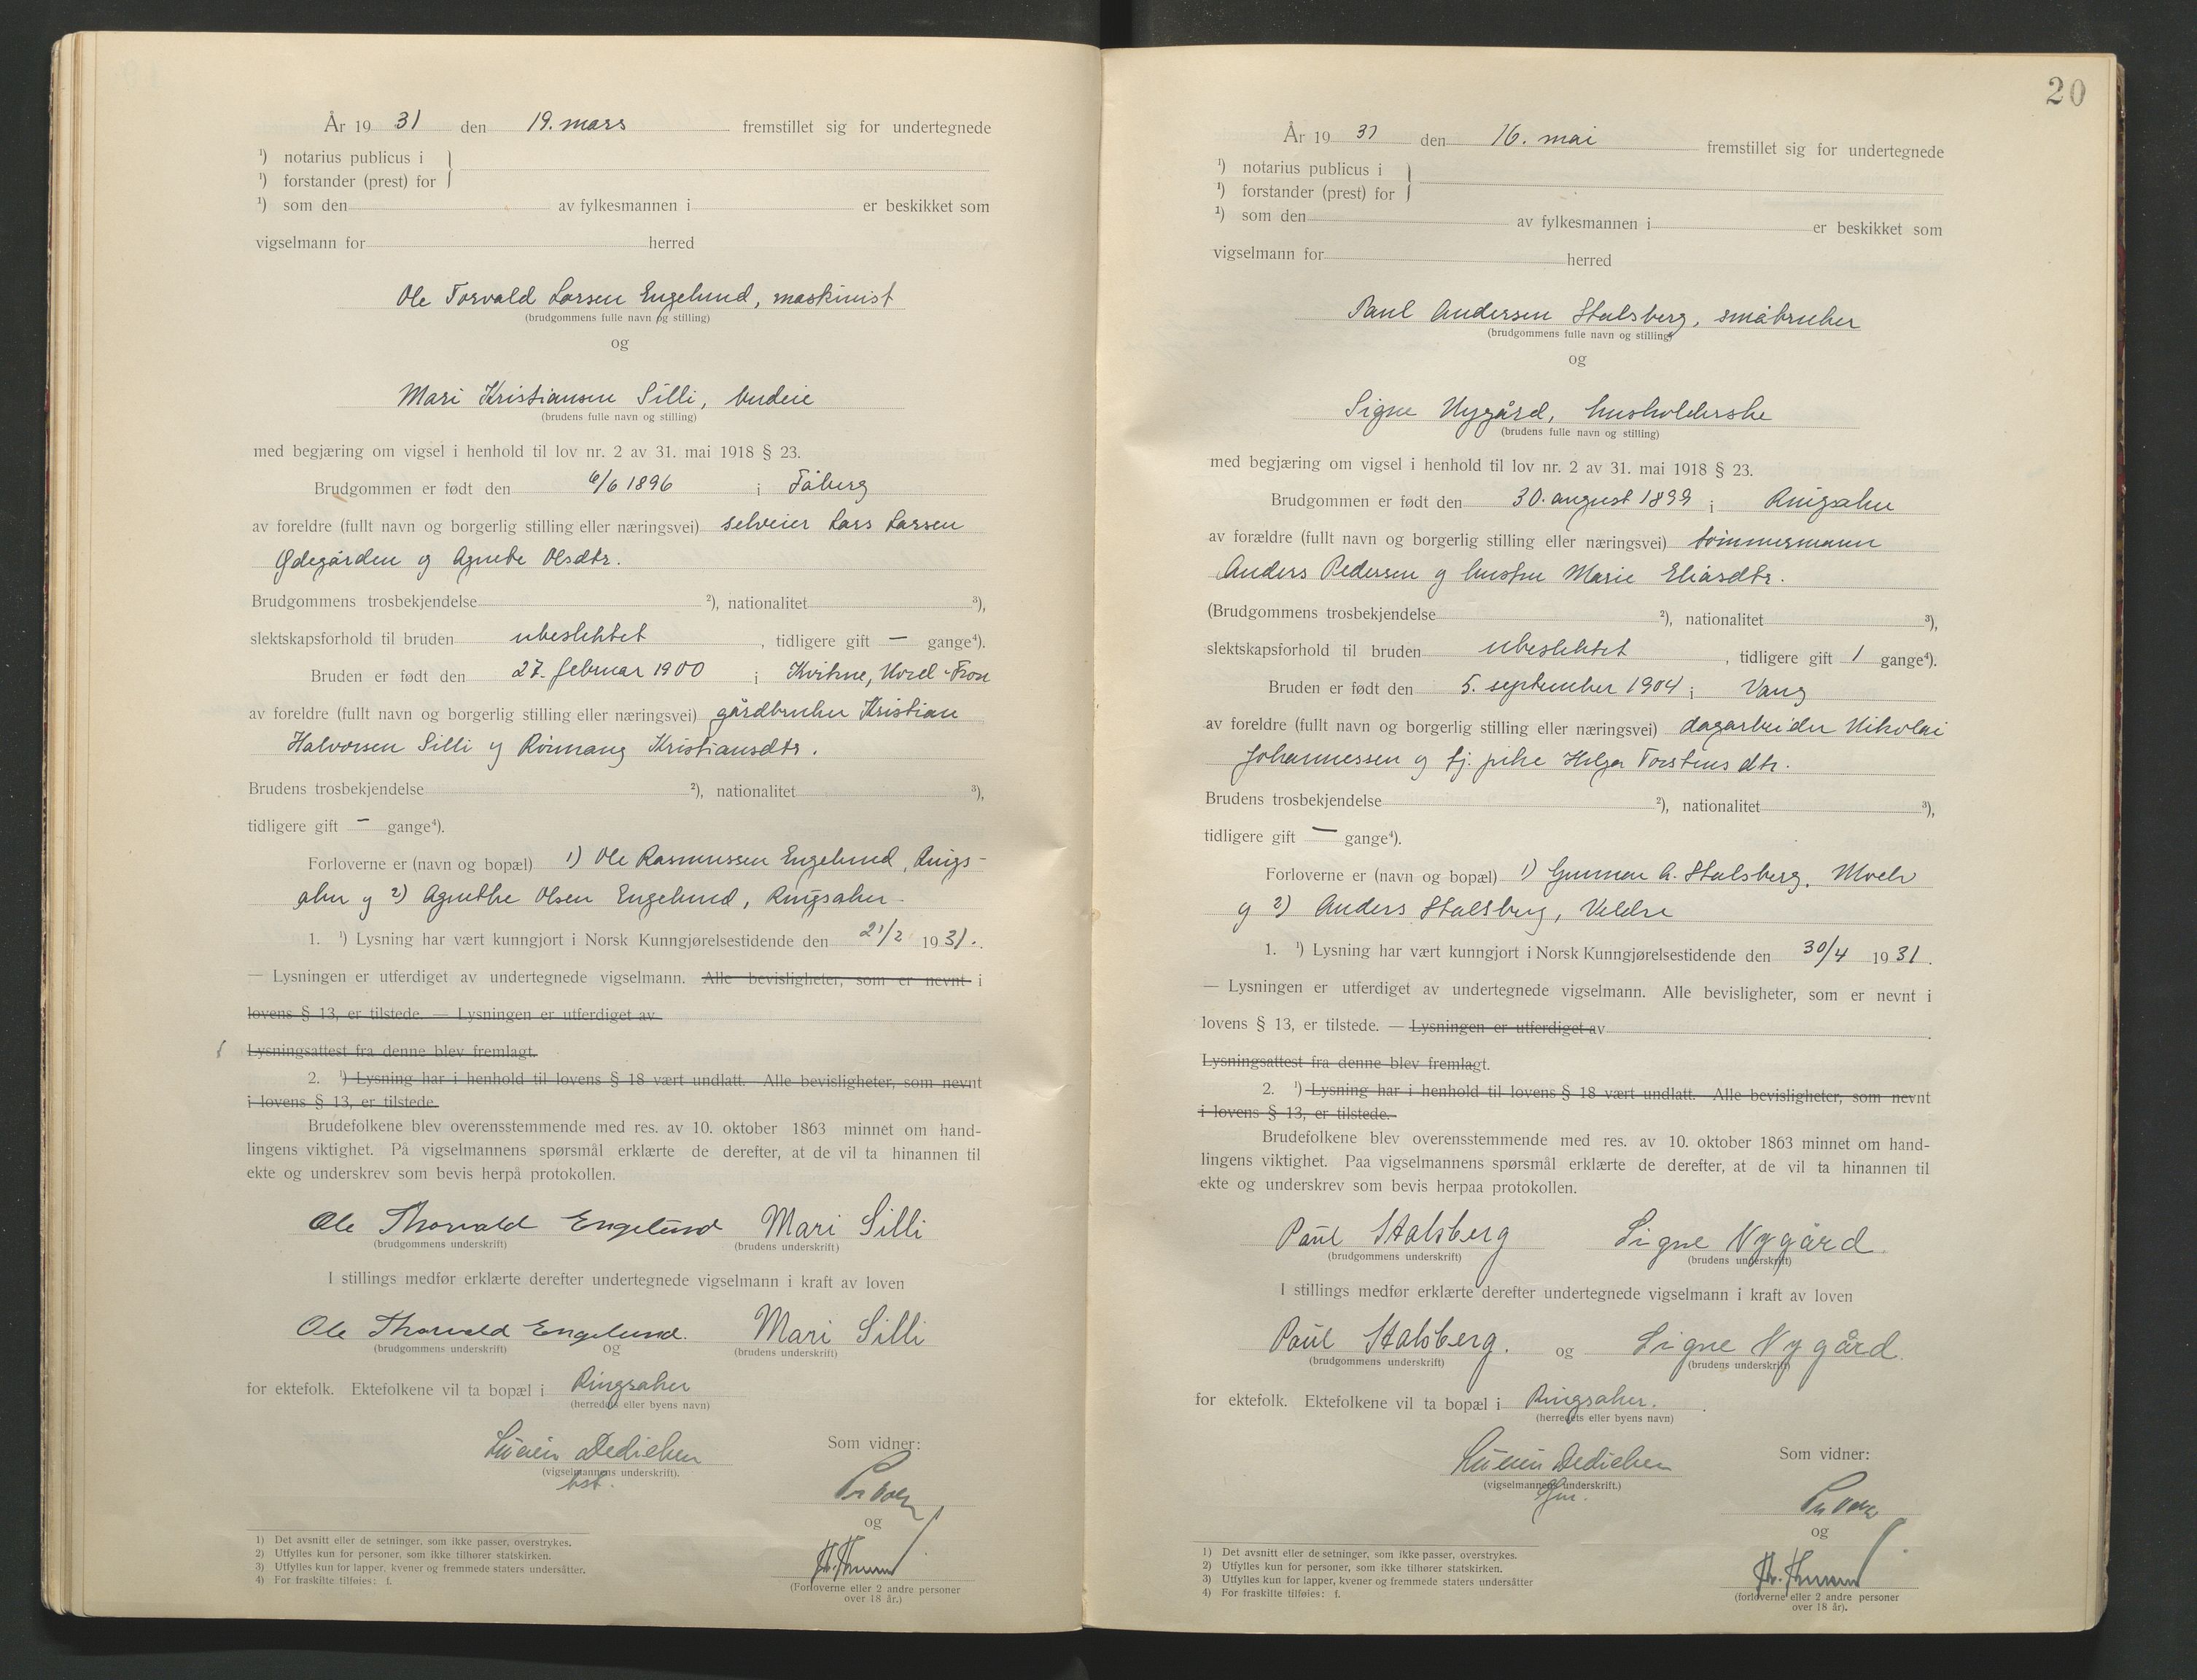 År 19 31 den 19. mars fremstillet sig for undertegnede
¹) notarius publicus i
¹) forstander (prest) for
¹) som den av fylkesmannen i er beskikket som
vigselmann for herred
Ole Torvald Larsen Engelund, maskinist
(brudgommens fulle navn og stilling)
og
Mari Kristiansen Silli, budeie
(brudens fulle navn og stilling)
med begjæring om vigsel i henhold til lov nr. 2 av 31. mai 1918 § 23.
Brudgommen er født den 6/6 1896 i Fåberg
av foreldre (fullt navn og borgerlig stilling eller næringsvei) selveier Lars Larsen
Ødegården og Agnete Olsdtr.
Brudgommens trosbekjendelse ²), nationalitet ³),
slektskapsforhold til bruden ubeslektet, tidligere gift — gange⁴).
Bruden er født den 27. februar 1900 i Kvikne, Nord-Fron
av foreldre (fullt navn og borgerlig stilling eller næringsvei) gårdbruker Kristian
Halvorsen Silli og Rønnaug Kristiansdtr.
Brudens trosbekjendelse ²), nationalitet ³),
tidligere gift — gange⁴).
Forloverne er (navn og bopæl) 1) Ole Rasmussen Engelund, Rings-
aker og 2) Agnethe Olsen Engelund, Ringsaker.
1. ¹) Lysning har vært kunngjort i Norsk Kunngjørelsestidende den 21/2 1931.
— Lysningen er utferdiget av undertegnede vigselmann. Alle bevisligheter, som er nevnt i
lovens § 13, er tilstede. — Lysningen er utferdiget av
Lysningsattest fra denne blev fremlagt.
2. ¹) Lysning har i henhold til lovens § 18 vært undlatt. Alle bevisligheter, som nevnt
i lovens § 13, er tilstede.
Brudefolkene blev overensstemmende med res. av 10. oktober 1863 minnet om hand-
lingens viktighet. På vigselmannens spørsmål erklærte de derefter, at de vil ta hinannen til
ekte og underskrev som bevis herpå protokollen.
Ole Thorvald Engelund Mari Silli
(brudgommens underskrift) (brudens underskrift)
I stillings medfør erklærte derefter undertegnede vigselmann i kraft av loven
Ole Thorvald Engelund. Mari Silli
(brudgommens underskrift) og (brudens underskrift)
for ektefolk. Ektefolkene vil ta bopæl i Ringsaker
(herredets eller byens navn)
Lucien Dedichen Som vidner:
(vigselmannens underskrift).
og
(Forloverne eller 2 andre personer
over 18 år.)
1) Det avsnitt eller de setninger, som ikke passer, overstrykes.
2) Utfylles kun for personer, som ikke tilhører statskirken.
3) Utfylles kun for lapper, kvener og fremmede staters undersåtter.
4) For fraskilte tilføies: f.
20
År 19 31 den 16. mai fremstillet sig for undertegnede
¹) notarius publicus i
¹) forstander (prest) for
¹) som den av fylkesmannen i er beskikket som
vigselmann for herred
Paul Andersen Stalsberg, småbruker
(brudgommens fulle navn og stilling)
og
Signe Nygård, husholderske
(brudens fulle navn og stilling)
med begjæring om vigsel i henhold til lov nr. 2 av 31. mai 1918 § 23.
Brudgommen er født den 30. august 1899 i Ringsaker
av forældre (fullt navn og borgerlig stilling eller næringsvei) tømmermann
Anders Pedersen og hustru Marie Eliasdtr.
(Brudgommens trosbekjendelse ²), nationalitet ³),
slektskapsforhold til bruden ubeslektet, tidligere gift 1 gange⁴).
Bruden er født den 5. september 1904 i Vang
av foreldre (fullt navn og borgerlig stilling eller næringsvei) dagarbeider Nikolai
Johannessen og tj. pike Helga Torstensdtr.
Brudens trosbekjendelse ²), nationalitet ³),
tidligere gift — gange⁴).
Forloverne er (navn og bopæl) 1) Gunnar A. Stalsberg, Moelv
og 2) Anders Stalsberg, Veldre
1. ¹) Lysning har vært kunngjort i Norsk Kunngjørelsestidende den 30/4 1931.
— Lysningen er utferdiget av undertegnede vigselmann. Alle bevisligheter, som er nevnt i
lovens § 13, er tilstede. — Lysningen er utferdiget av
Lysningsattest fra denne blev fremlagt.
2. ¹) Lysning har i henhold til lovens § 18 vært undlatt. Alle bevisligheter, som nevnt
i lovens § 13, er tilstede.
Brudefolkene blev overensstemmende med res. av 10. oktober 1863 minnet om hand-
lingens viktighet. Paa vigselmannens spørsmål erklærte de derefter, at de vil ta hinannen til
ekte og underskrev som bevis herpaa protokollen.
Paul Stalsberg Signe Nygård.
(brudgommens underskrift) (brudens underskrift)
I stillings medfør erklærte derefter undertegnede vigselmann i kraft av loven
Paul Stalsberg. og Signe Nygård.
(brudgommens underskrift) (brudens underskrift)
for ektefolk. Ektefolkene vil ta bopæl i Ringsaker.
(herredets eller byens navn)
Lucien Dedichen Som vidner:
(vigselmannens underskrift.)
og
(forloverne eller 2 andre personer
over 18 år).
1) Det avsnitt eller de setninger, som ikke passer, overstrykes.
2) Utfylles kun for personer, som ikke tilhører statskirken.
3) Utfylles kun for lapper, kvener og fremmede staters undersåtter
4) For fraskilte tilføies: f.